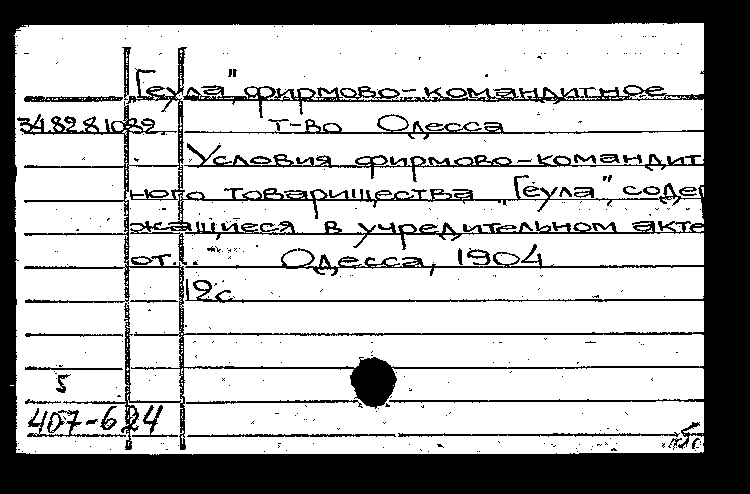 "Геула", фирмово-командитное
34.82.8.1082. т-во Одесса
Условия фирмово-командит-
ного товарищества "Геула", содер
жащиеся в учредительном акте
от... Одесса, 1904
12с.
5
407-624